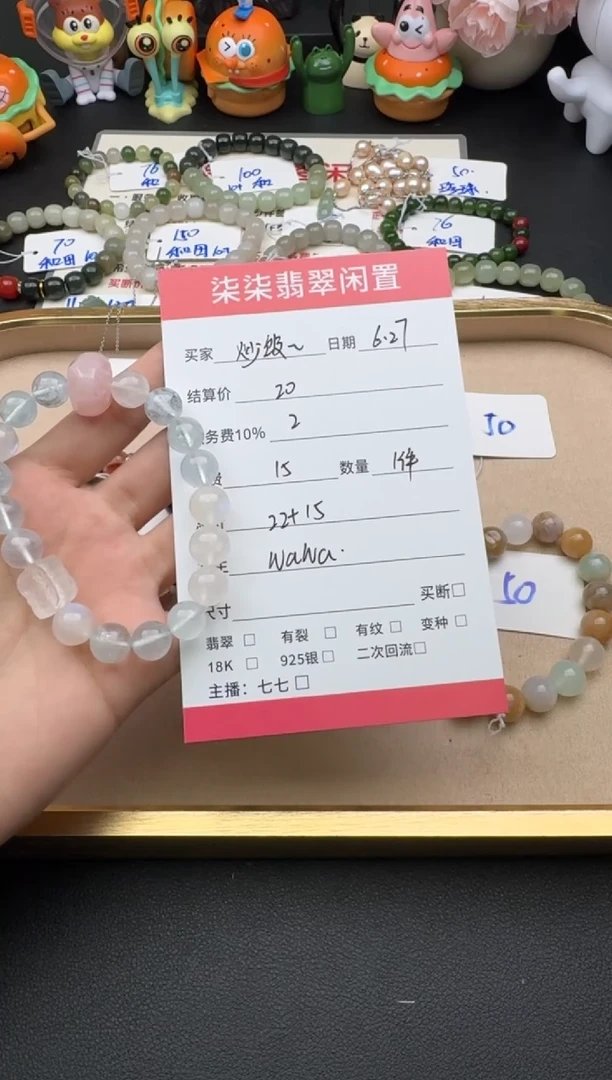 76
和
100
和
50.
珍珠.
70
和田
150
和田
76
和田
柒柒翡翠闲置
买家 炒饭~ 日期 6.27
结算价 20
务费10% 2
费 15 数量 1件
22+15
WaWa.
尺寸 买断□
翡翠 □ 有裂 □ 有纹 □ 变种 □
18K □ 925银□ 二次回流□
主播：七七 □
50
50